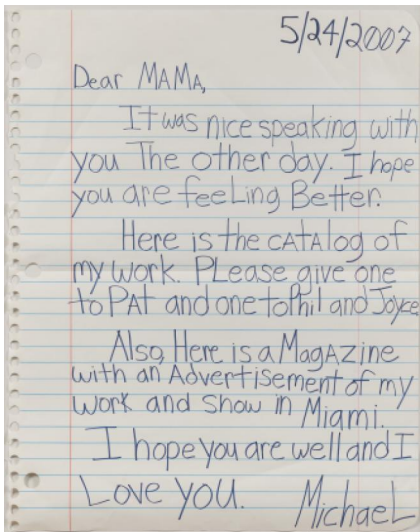 5/24/2007
Dear MAMA,
It was nice speaking with
you The other day. I hope
you are feeLing Better.
Here is the cATAlog of
my work. PLease give one
to PAT and one to Phil and Joyce
Also, Here is a MagAzine
with an AdverTisement of my
work and Show in Miami.
I hope you are well and I
Love you.
MichaeL